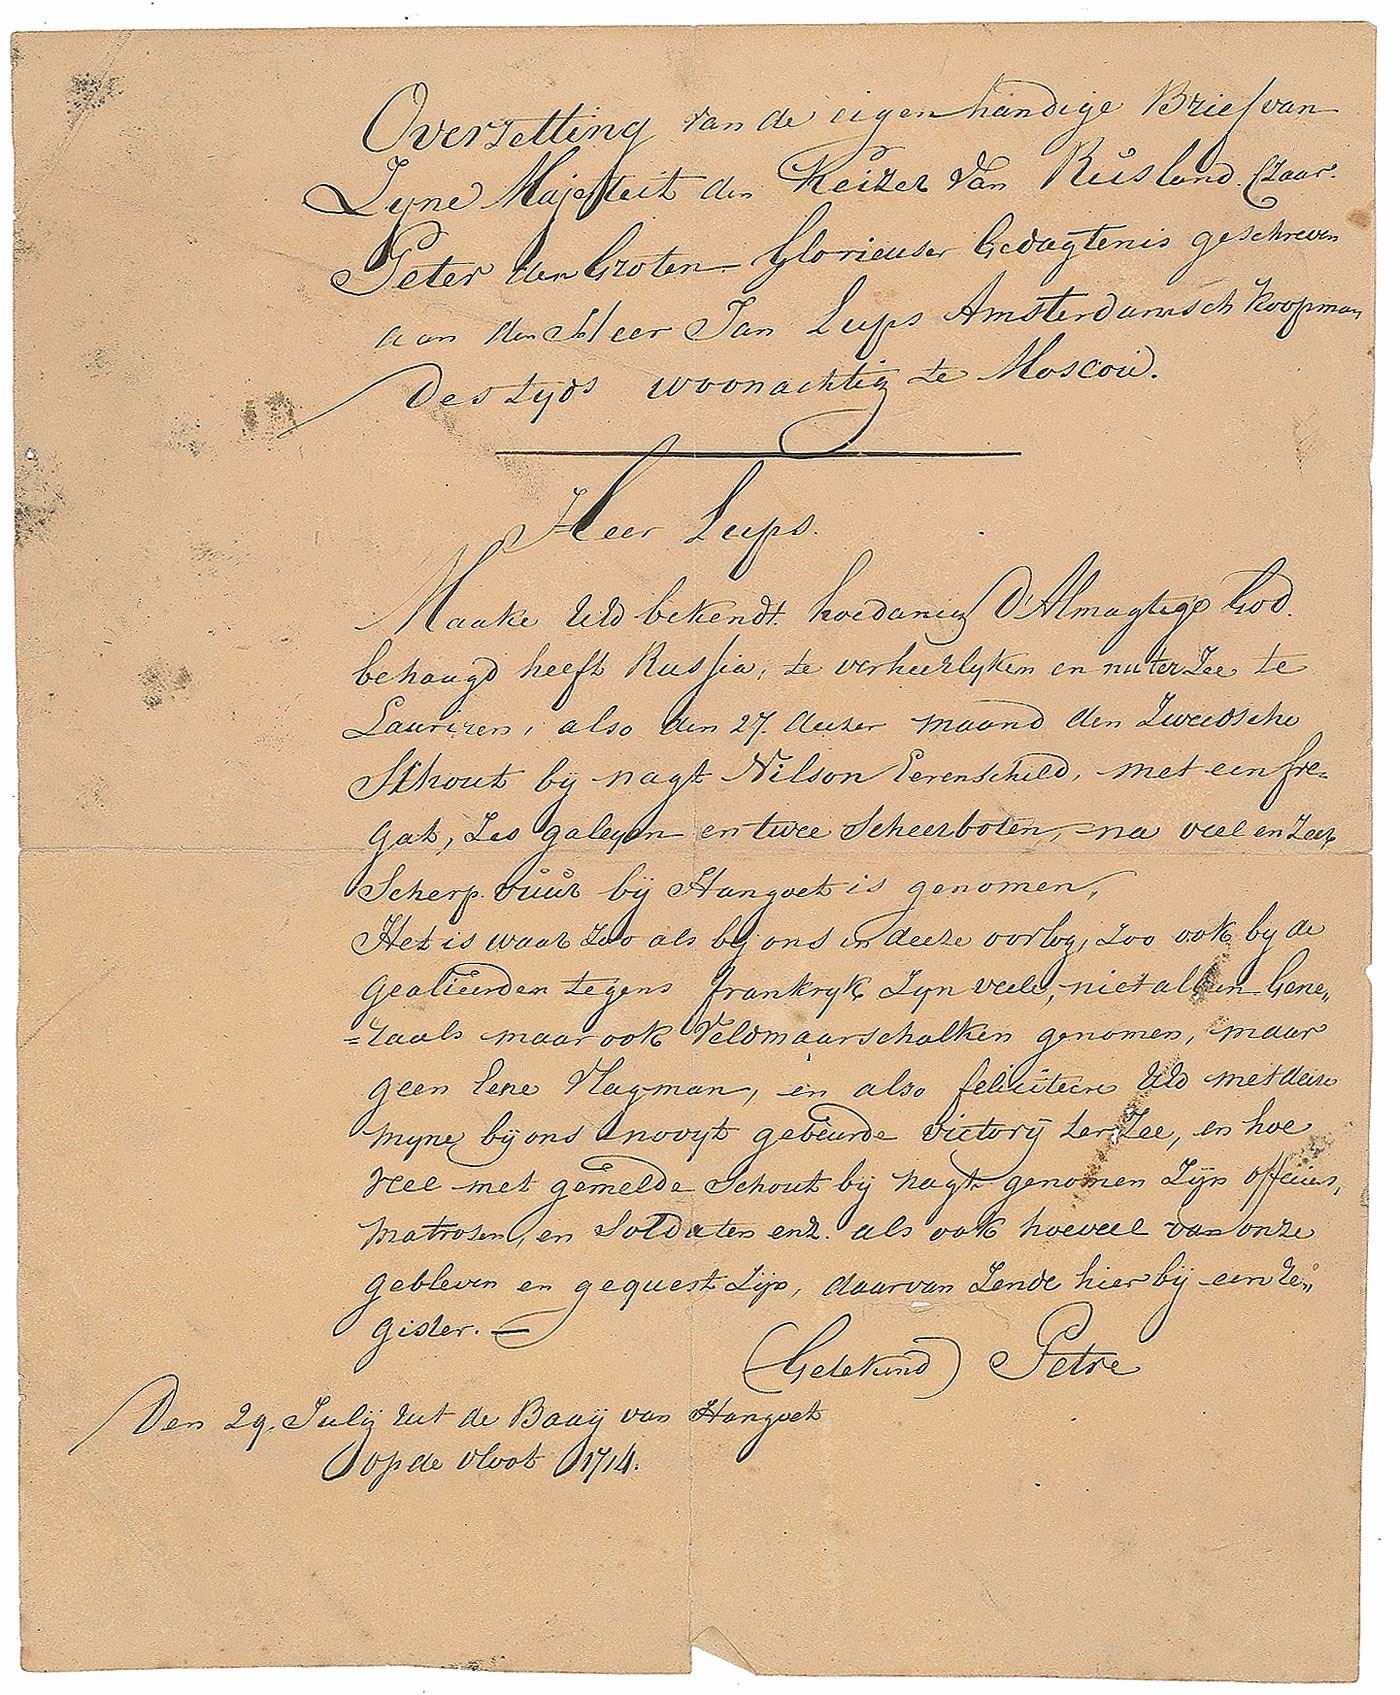 Overzetting van de eigenhandige Brief van
Zyne Majesteit den Keizer van Rusland Czaar
Peter den Groten Glorieuser Gedagtenis geschreven
aan den Heer Jan Lups Amsterdamsch Koopman
destyds woonachtig te Moscou.
Heer Lups.
Maake UEd bekendt hoedanig D'Almagtige God
behaagd heeft Russia, te verheerlyken en nu ter Zee te
Laurizen, also den 27. deezer maand den Zweedsche
Schout by nagt Nilson Eerenschild, met een fre=
gat, Zes galeyen en twee Scheerboten, na veel en Zeer
Scherp vuur bij Hangoet is genomen,
Het is waar Zoo als by ons in deeze oorlog, Zoo ook by de
Gealieerden tegens frankryk Zyn veele, niet alleen Gene„
=raals maar ook Veldmaarschalken genomen, maar
geen Eene Vlagman, en also feliciteere UEd met deese
myne by ons nooyt gebeurde victory ter Zee, en hoe
veel met gemelde Schout by nagt genomen Zijn officiers,
matrosen, en Soldaten enz. als ook hoeveel van onze
gebleven en gequest Zijn, daarvan Zende hier bij een re„
gister. —
(Getekend) Petre
Den 29. Julij uit de Baaij van Hangoet
op de vloot 1714.